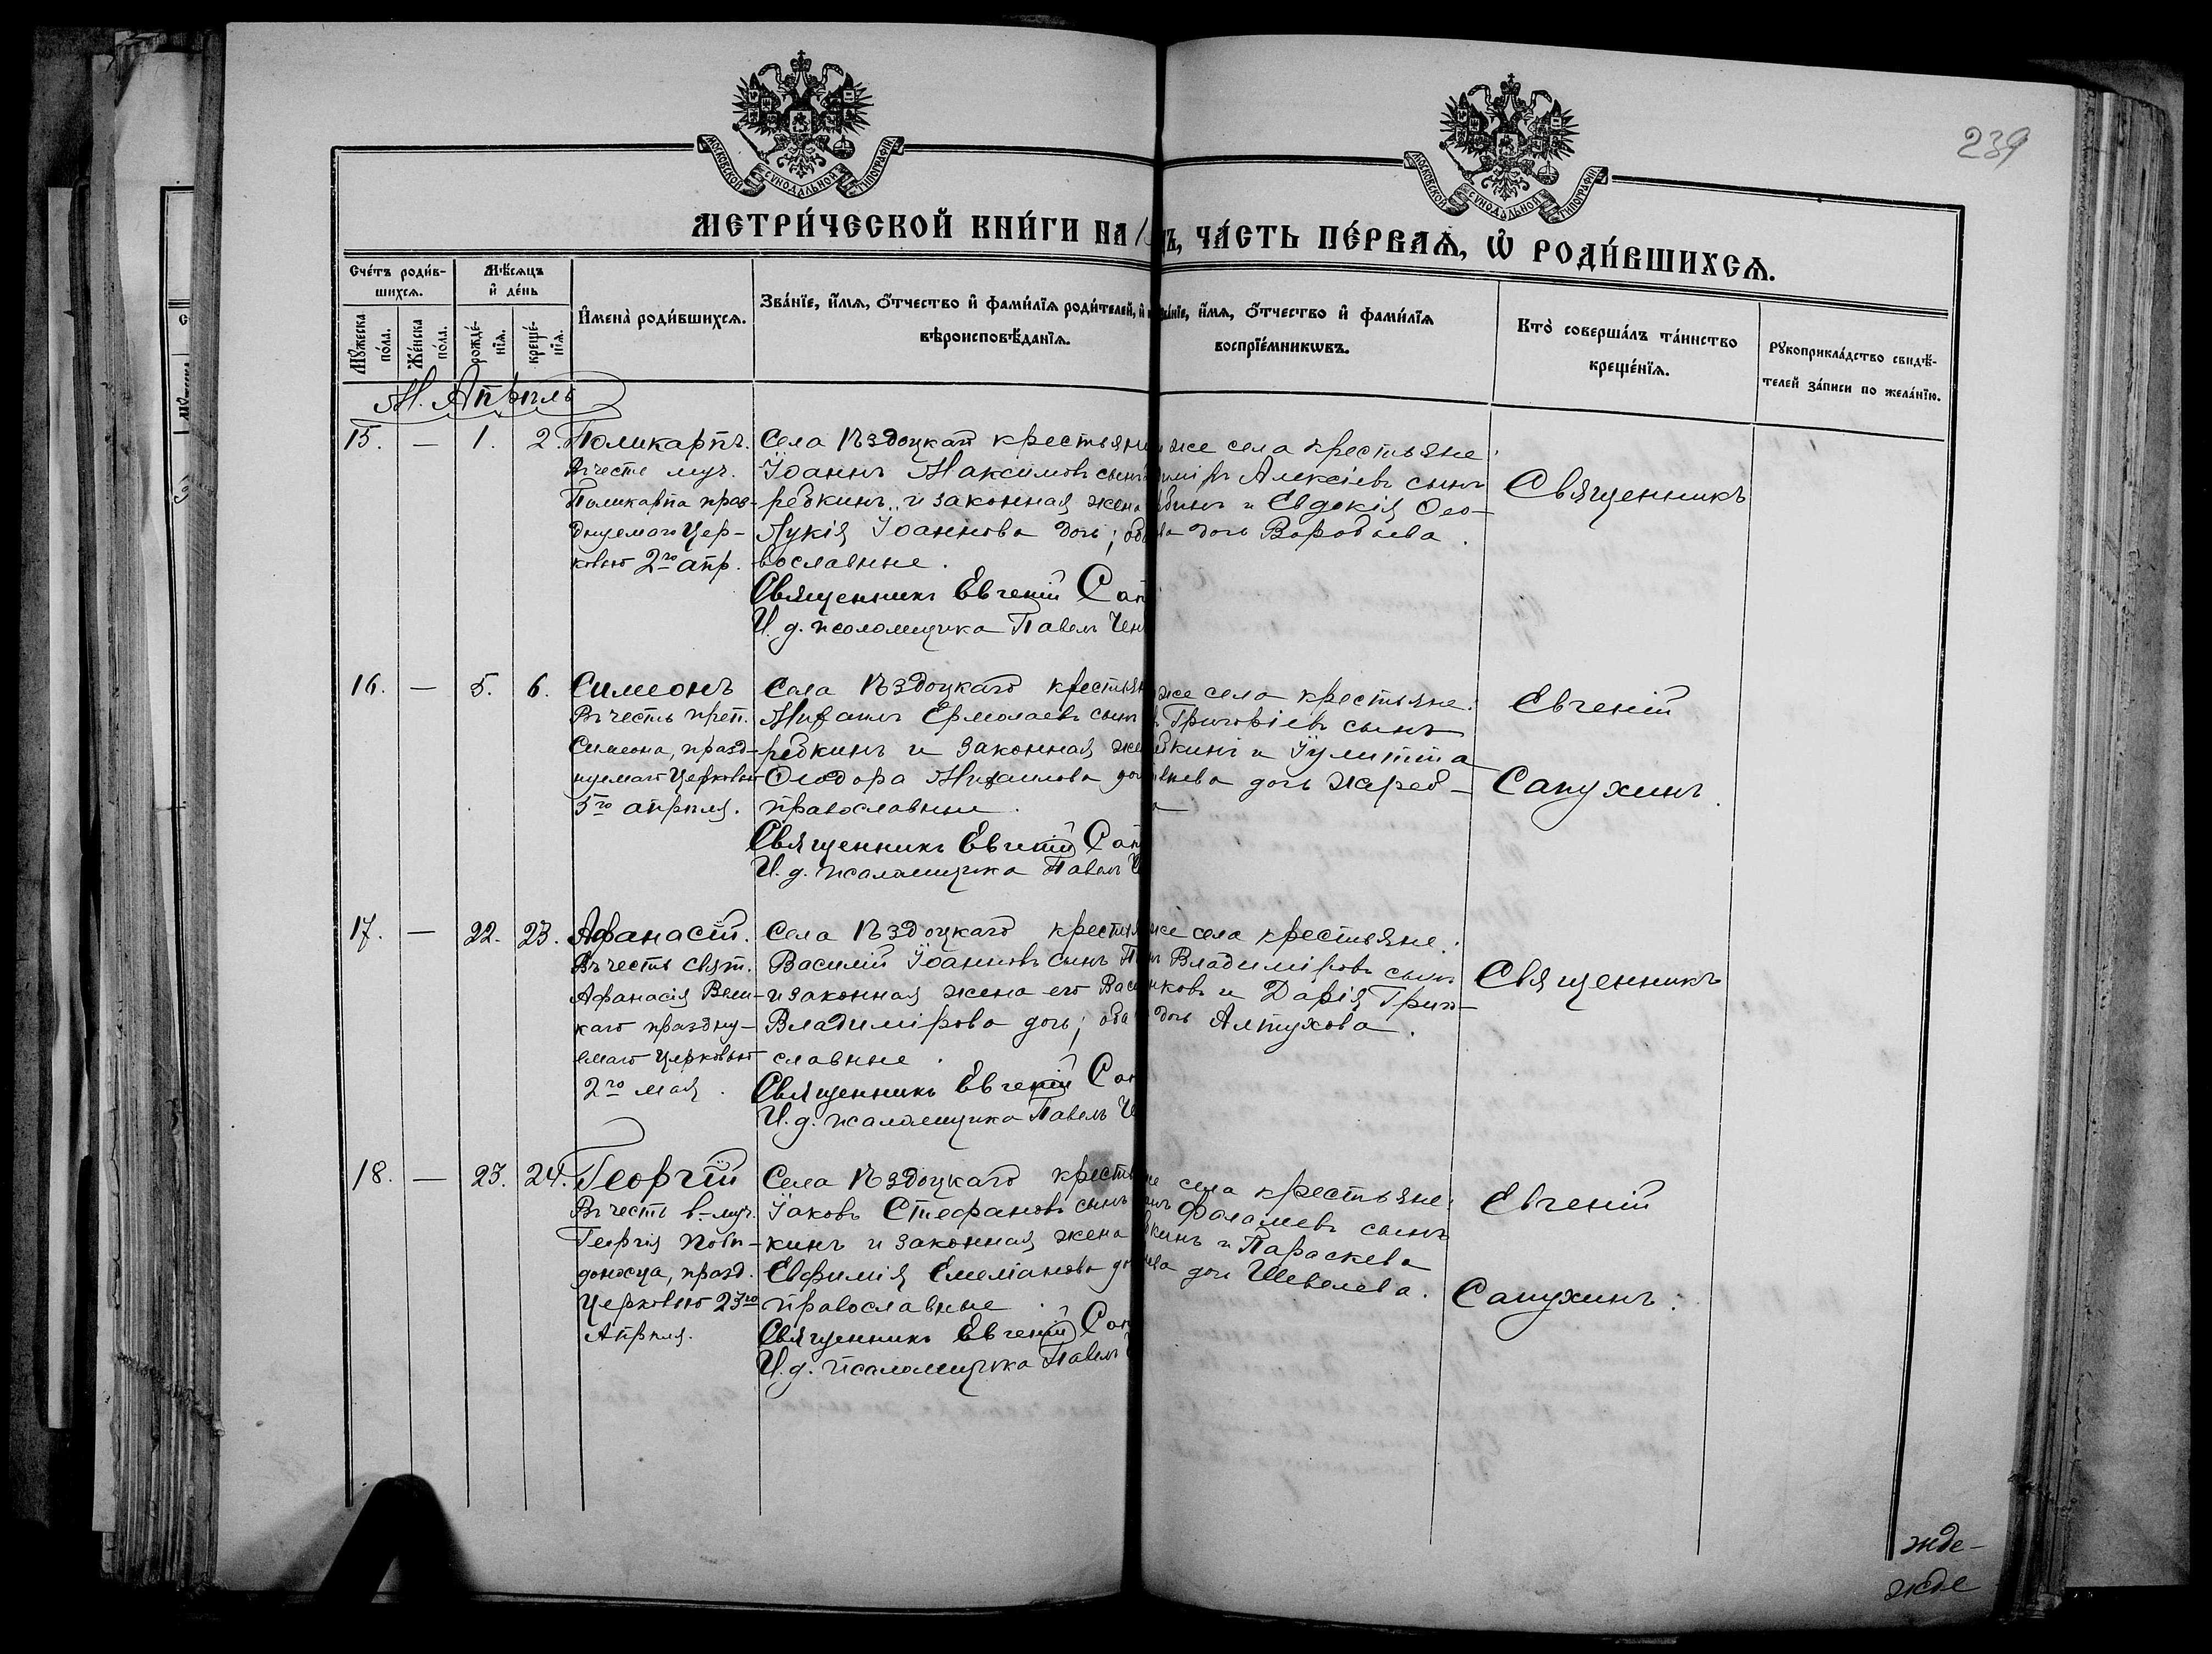 239
МОСКОВСКОЙ СѴНОДАЛЬНОЙ ТИПОГРАФІИ
МОСКОВСКОЙ СѴНОДАЛЬНОЙ ТИПОГРАФІИ
МЕТРИ́ЧЕСКОЙ КНИ́ГИ НА 1
ЧА́СТЬ ПЕ́РВАѦ, Ѡ҆ РОДИ́ВШИХСѦ.
Сче́тъ роди́в-
шихсѧ.
Мѣ́сѧцъ
и҆ де́нь
Мꙋ́жеска по́ла.
Же́нска по́ла.
рожде́-
нїѧ.
креще́-
нїѧ.
И҆мена̀ роди́вшихсѧ.
Зва́нїе, и҆́мѧ, ѻ҆́тчество и҆ фами́лїѧ роди́телей, и҆
вѣроисповѣ́данїѧ.
и҆́мѧ, ѻ҆́тчество и҆ фами́лїѧ
воспрїе́мникѡвъ.
Кто̀ соверша́лъ та́инство
креще́нїѧ.
Рꙋкоприкла́дство свидѣ́-
телей за́писи по жела́нїю.
М. Апрѣль
15. — 1. 2. Поликарпъ.
Въ честь муч.
Поликарпа праз-
днуемаго Цер-
ковью 2го апр.
Села Ѣздоцкаго крестьян
Іоаннъ Максимовъ сынъ
ребкинъ и законная жена
Лукія Іоаннова дочь;
вославные.
Священникъ Евгеній Сап
И. д. псаломщика Павелъ Чен
же села крестьяне:
Алексіевъ сынъ
и Евдокія Ѳео-
дочь Воробьева.
Священникъ
16. — 5. 6. Симеонъ
Въ честь преп.
Симеона, празд-
нуемаго Церковью
5го апрѣля.
Села Ѣздоцкаго крестьян
Михаилъ Ермолаевъ сынъ
ребкинъ и законная же
Ѳеодора Михаилова до
православные.
Священникъ Евгеній Сап
И. д. псаломщика Павелъ Ч
же села крестьяне:
Григоріевъ сынъ
кинъ и Іулитта
дочь Жереб-
а
Евгеній
Сапухинъ.
17. — 22. 23. Афанасій.
Въ честь свят.
Афанасія Вели-
каго праздну-
емаго Церковью
2го мая.
Села Ѣздоцкаго крестья
Василій Іоанновъ сынъ
и законная жена его Вас
Владимірова дочь; оба
славные.
Священникъ Евгеній Сап
И. д. псаломщика Павелъ Че
же села крестьяне:
Владиміровъ сынъ
ковъ и Дарія Григо-
дочь Алтухова.
Священникъ
18. — 23. 24. Георгій
Въ честь в.-муч.
Георгія Побѣ-
доносца, празд.
Церковью 23го
Апрѣля.
Села Ѣздоцкаго крест
Іаковъ Стефановъ сынъ
кинъ и законная жена
Евфимія Емеліанова до
православные.
Священникъ Евгеній Сап
И. д. псаломщика Павелъ
села крестьяне:
Фалалеевъ сынъ
кинъ и Параскева
дочь Шевелева.
Евгеній
Сапухинъ.
жде-
жде